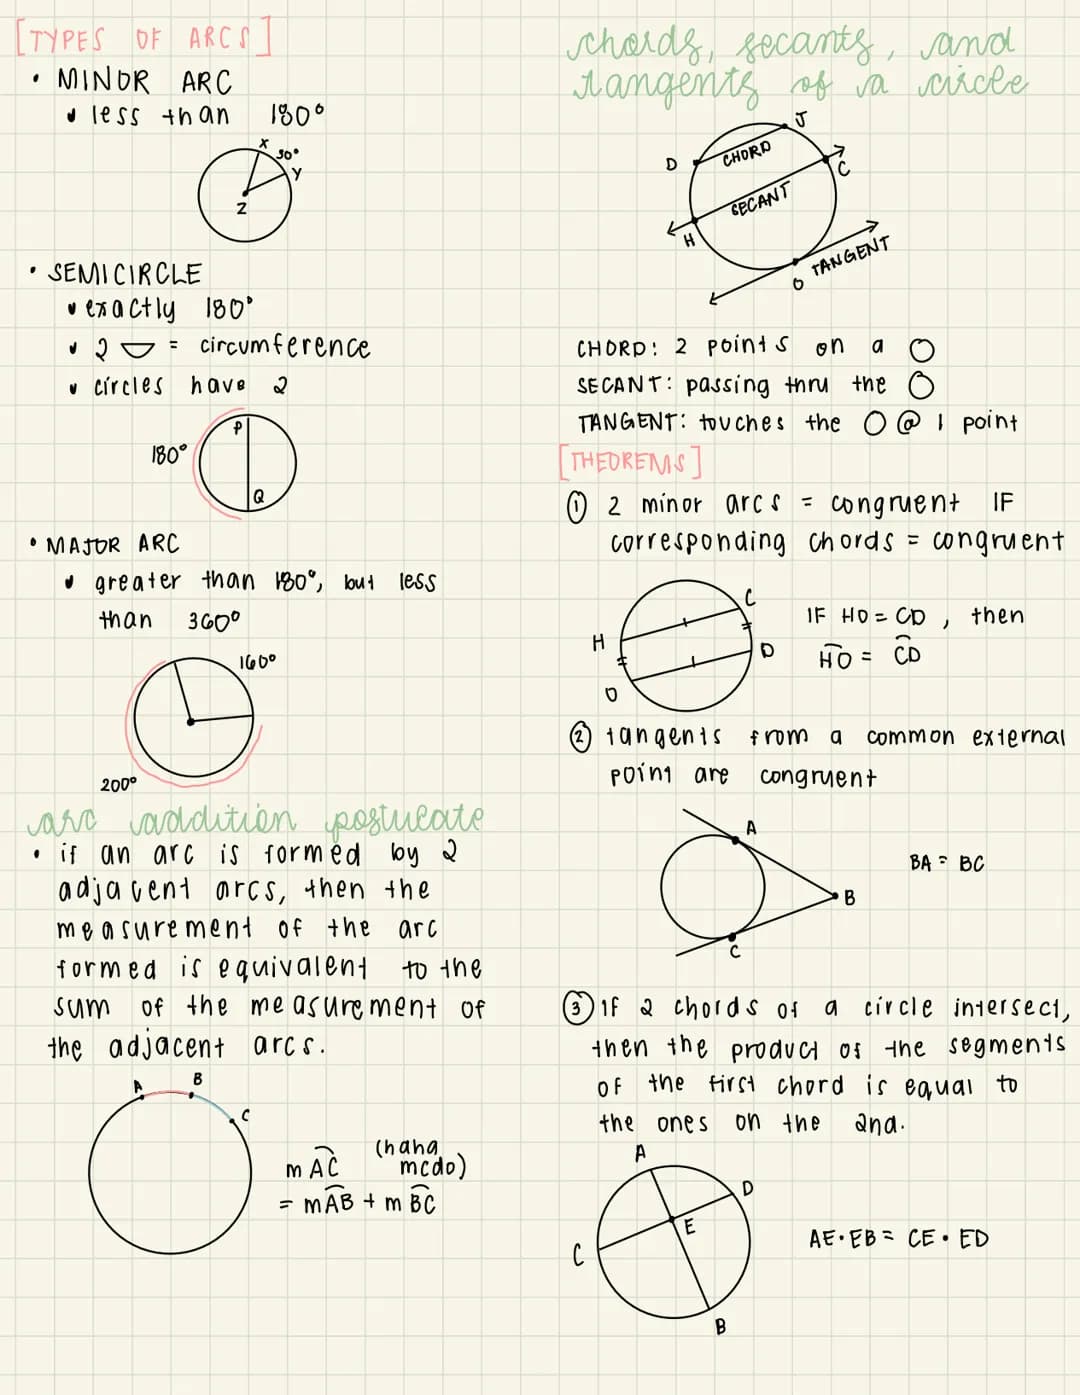 [TYPES OF ARCS]
• MINOR ARC
less than 180°
X
30°
Y
Z
• SEMICIRCLE
exactly 180°
2 = circumference
circles have 2
180°
P
Q
• MAJOR ARC
greater than 180°, but less
than 360°
160°
200°
arc addition postulate
• if an arc is formed by 2
adjacent arcs, then the
measurement of the arc
formed is equivalent to the
sum of the measurement of
the adjacent arcs.
A
B
C
m AC (haha
mcdo)
= mAB + m BC
chords, secants, and
tangents of a circle
J
D
CHORD
C
SECANT
H
TANGENT
O
CHORD: 2 points on a O
SECANT: passing thru the O
TANGENT: touches the O @ 1 point
[THEOREMS]
① 2 minor arcs = congruent IF
corresponding chords = congruent
C
H
D
O
IF HO = CD, then
HO = CD
② tangents from a common external
point are congruent
A
B
C
BA = BC
③ If 2 chords of a circle intersect,
then the product of the segments
of the first chord is equal to
the ones on the 2nd.
A
D
E
C
B
AE·EB = CE·ED